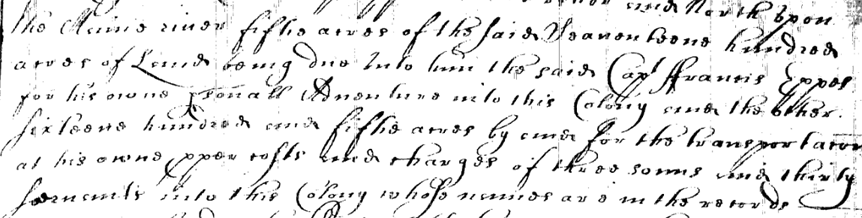 and North upon
the Maine river fiftie acres of the said Seaventeene hundred
acres of Land being due unto him the said Capt ffrancis Eppes
for his owne psonall Adventure into this Colony and the other
sixteene hundred and fiftie acres by and for the transportacon
at his owne pper costs and charges of three sonns and thirty
servants into this Colony whose names are in the records